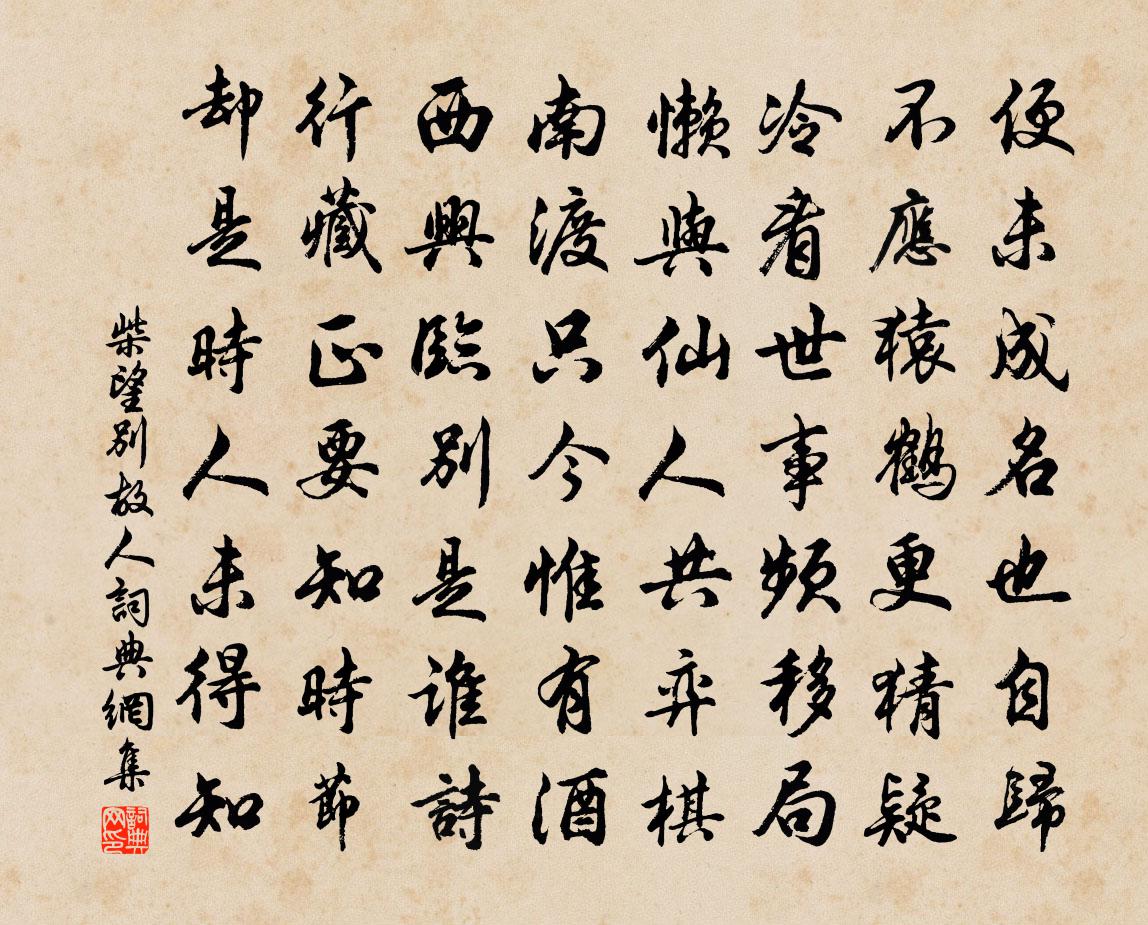 便未成名也自歸
不應猿鶴更猜疑
冷看世事頻移局
懶與仙人共弈棋
南渡只今惟有酒
西興臨別是誰詩
行藏正要知時節
却是時人未得知
柴望別故人詞典網集
詞典网印